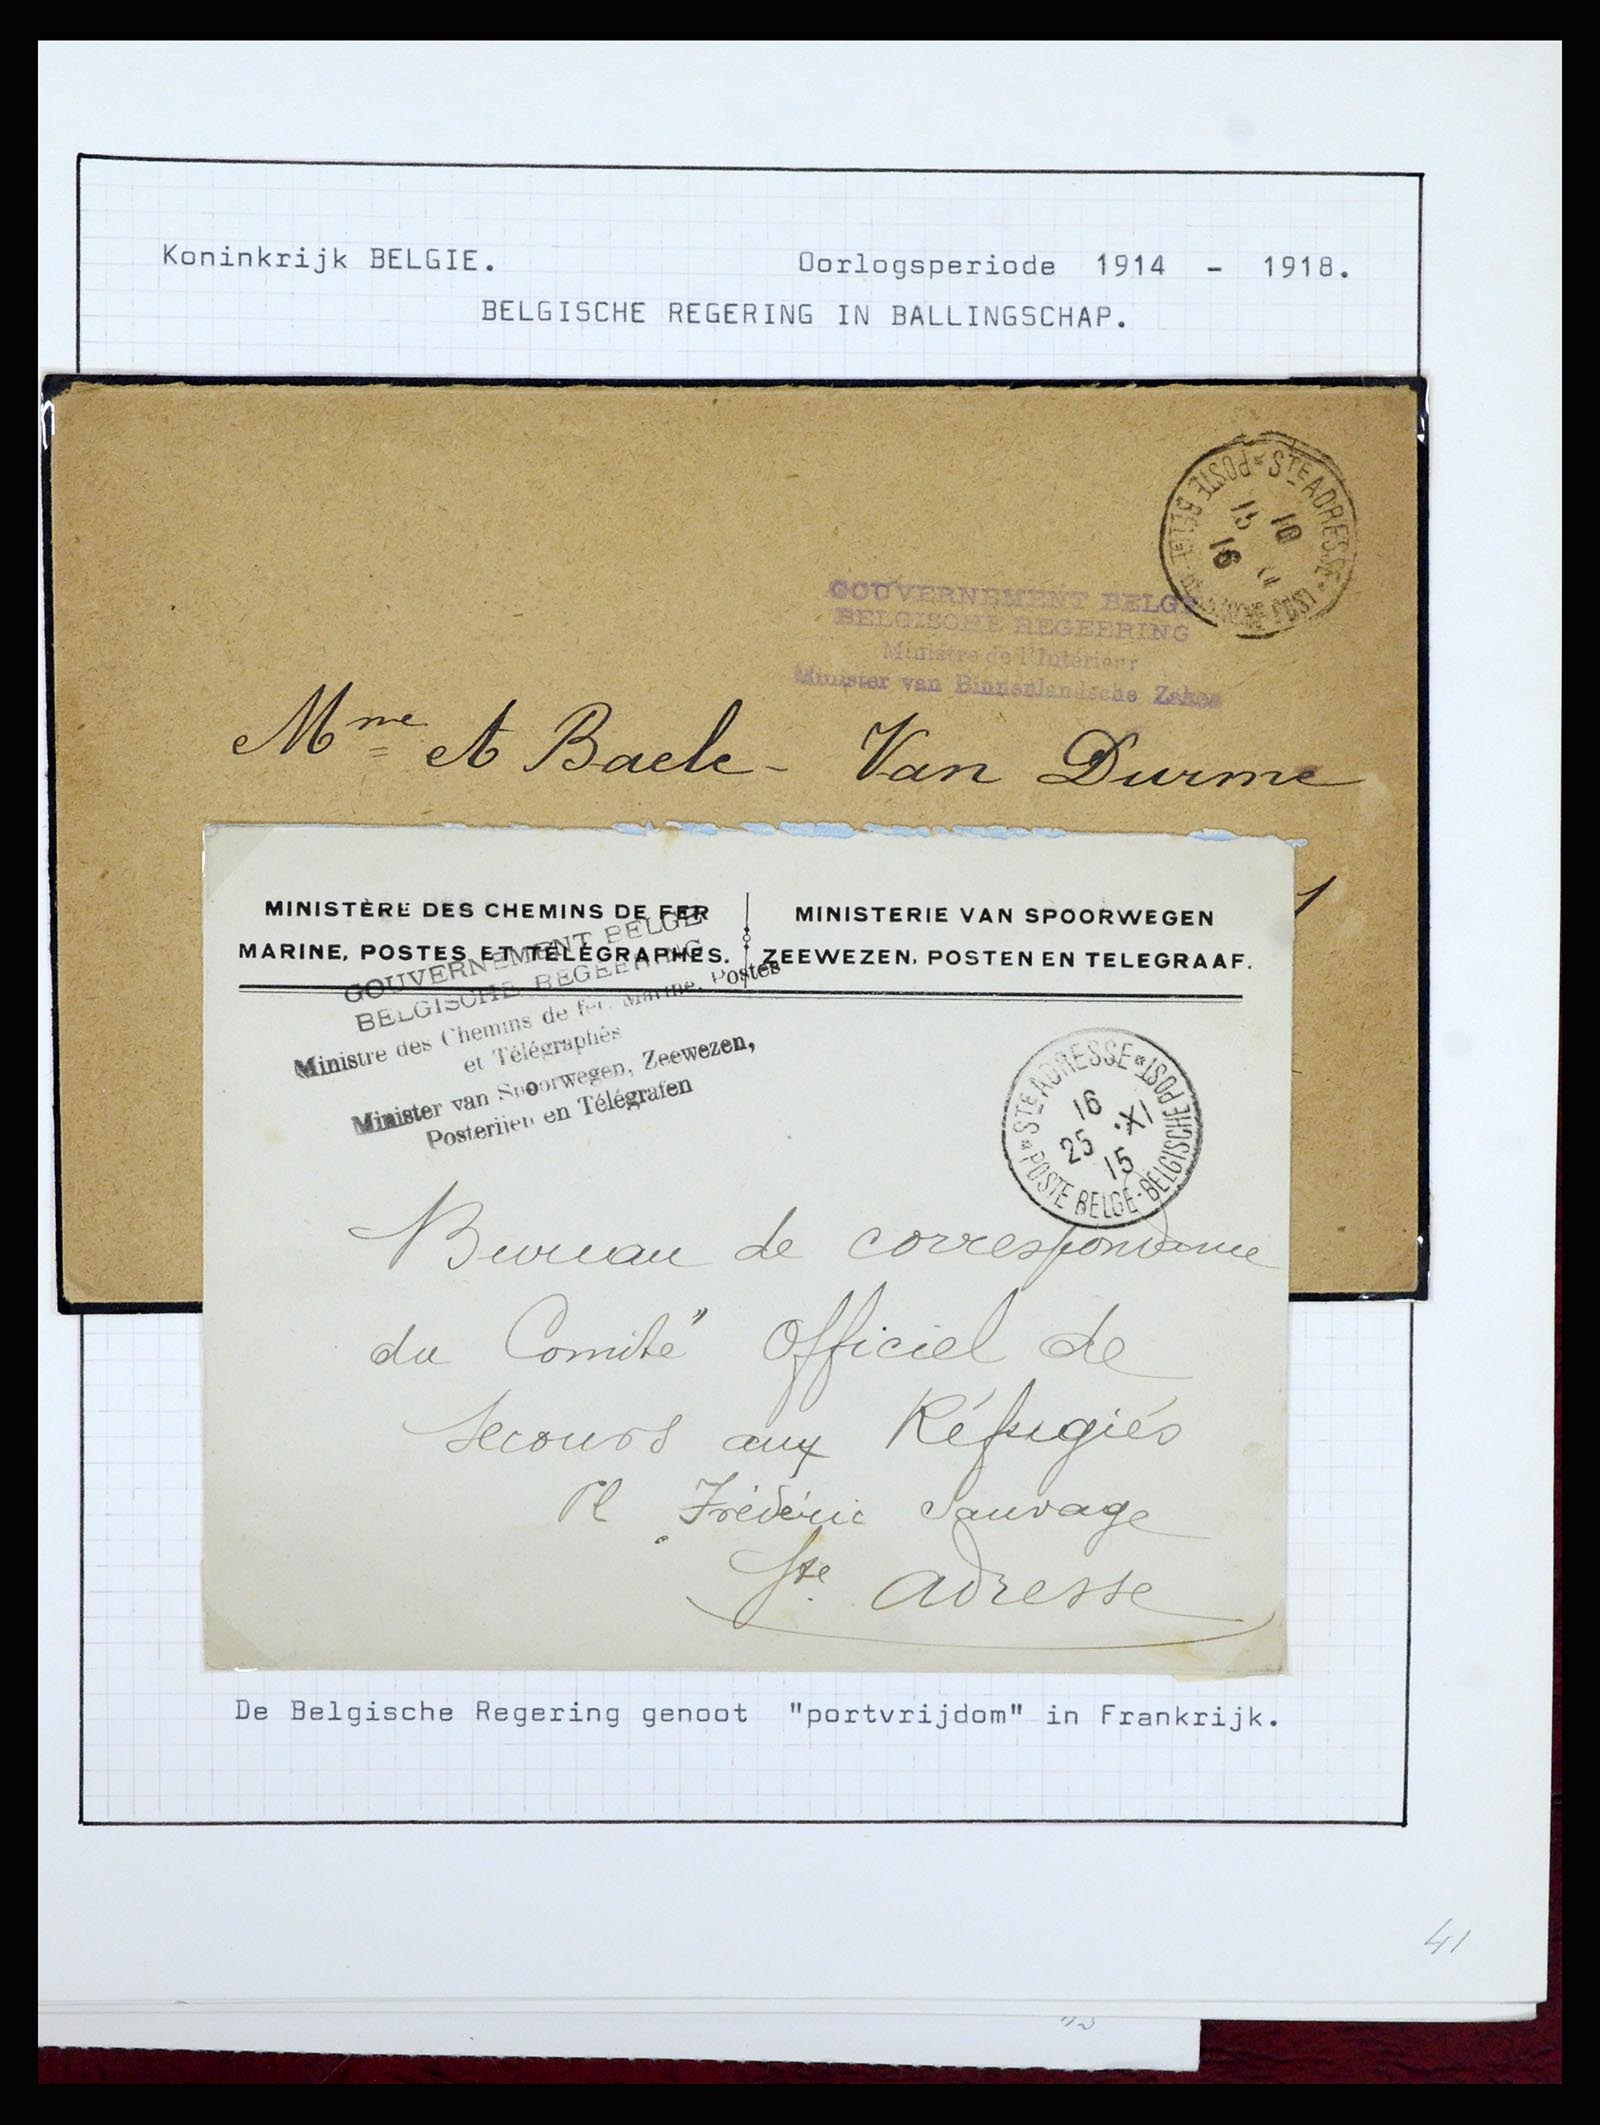 Koninkrijk BELGIE. Oorlogsperiode 1914 - 1918.
BELGISCHE REGERING IN BALLINGSCHAP.
STE ADRESSE
POSTE BELGE
10
15
16
GOUVERNEMENT BELGE
BELGISCHE REGEERING
Ministre de l'Intérieur
Minister van Binnenlandsche Zaken
Mme A Baele - Van Durme
MINISTÈRE DES CHEMINS DE FER
MARINE, POSTES ET TÉLÉGRAPHES.
MINISTERIE VAN SPOORWEGEN
ZEEWEZEN, POSTEN EN TELEGRAAF.
GOUVERNEMENT BELGE
BELGISCHE REGEERING
Ministre des Chemins de fer, Marine, Postes
et Télégraphes
Minister van Spoorwegen, Zeewezen,
Posterijen en Télégrafen
*STE ADRESSE*
POSTE BELGE-BELGISCHE POST
16
25 XI
15
Bureau de correspondance
du Comité Officiel de
Secours aux Réfugiés
Pl Frédéric Sauvage
Ste. Adresse
De Belgische Regering genoot "portvrijdom" in Frankrijk.
41